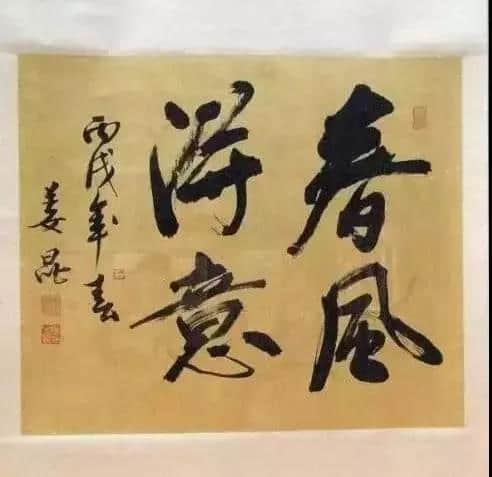 春風
得意
丙戌年春
姜昆